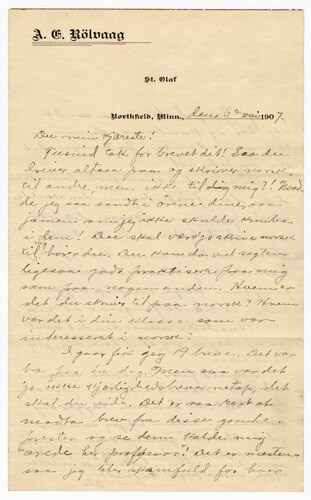 A. E. Rölvaag
St. Olaf
Northfield, Minn., den 6te mai 1907.
Du min Kjæreste!
Tusind tak for brevet dit! Saa du
driver altsaa paa og skriver norsk
til andre, men ikke til dig mig?! Havd
de jeg saa sandt i ørene dine, saa
jamen om jeg ikke skulde
i dem! Du skal værsgo skrive norsk
til, hører du. Du kan da vel sagtens
ligesaa godt praktisere paa mig
som paa nogen anden. Hvem er
det du skriver til paa norsk? Hvem
var det i din klasse, som var
interesserat i norsk?
I gaar fik jeg 19 breve. Det var
bra paa en dag. Men saa var det
jo ikke kjærlighedsbreve netop, det
skal du vide. Det er saa rart at
modta brev fra disse gamle
prester og se dem kalde mig
"ærede hr. professor"! Det er næsten
saa jeg blir skamfuld for hver